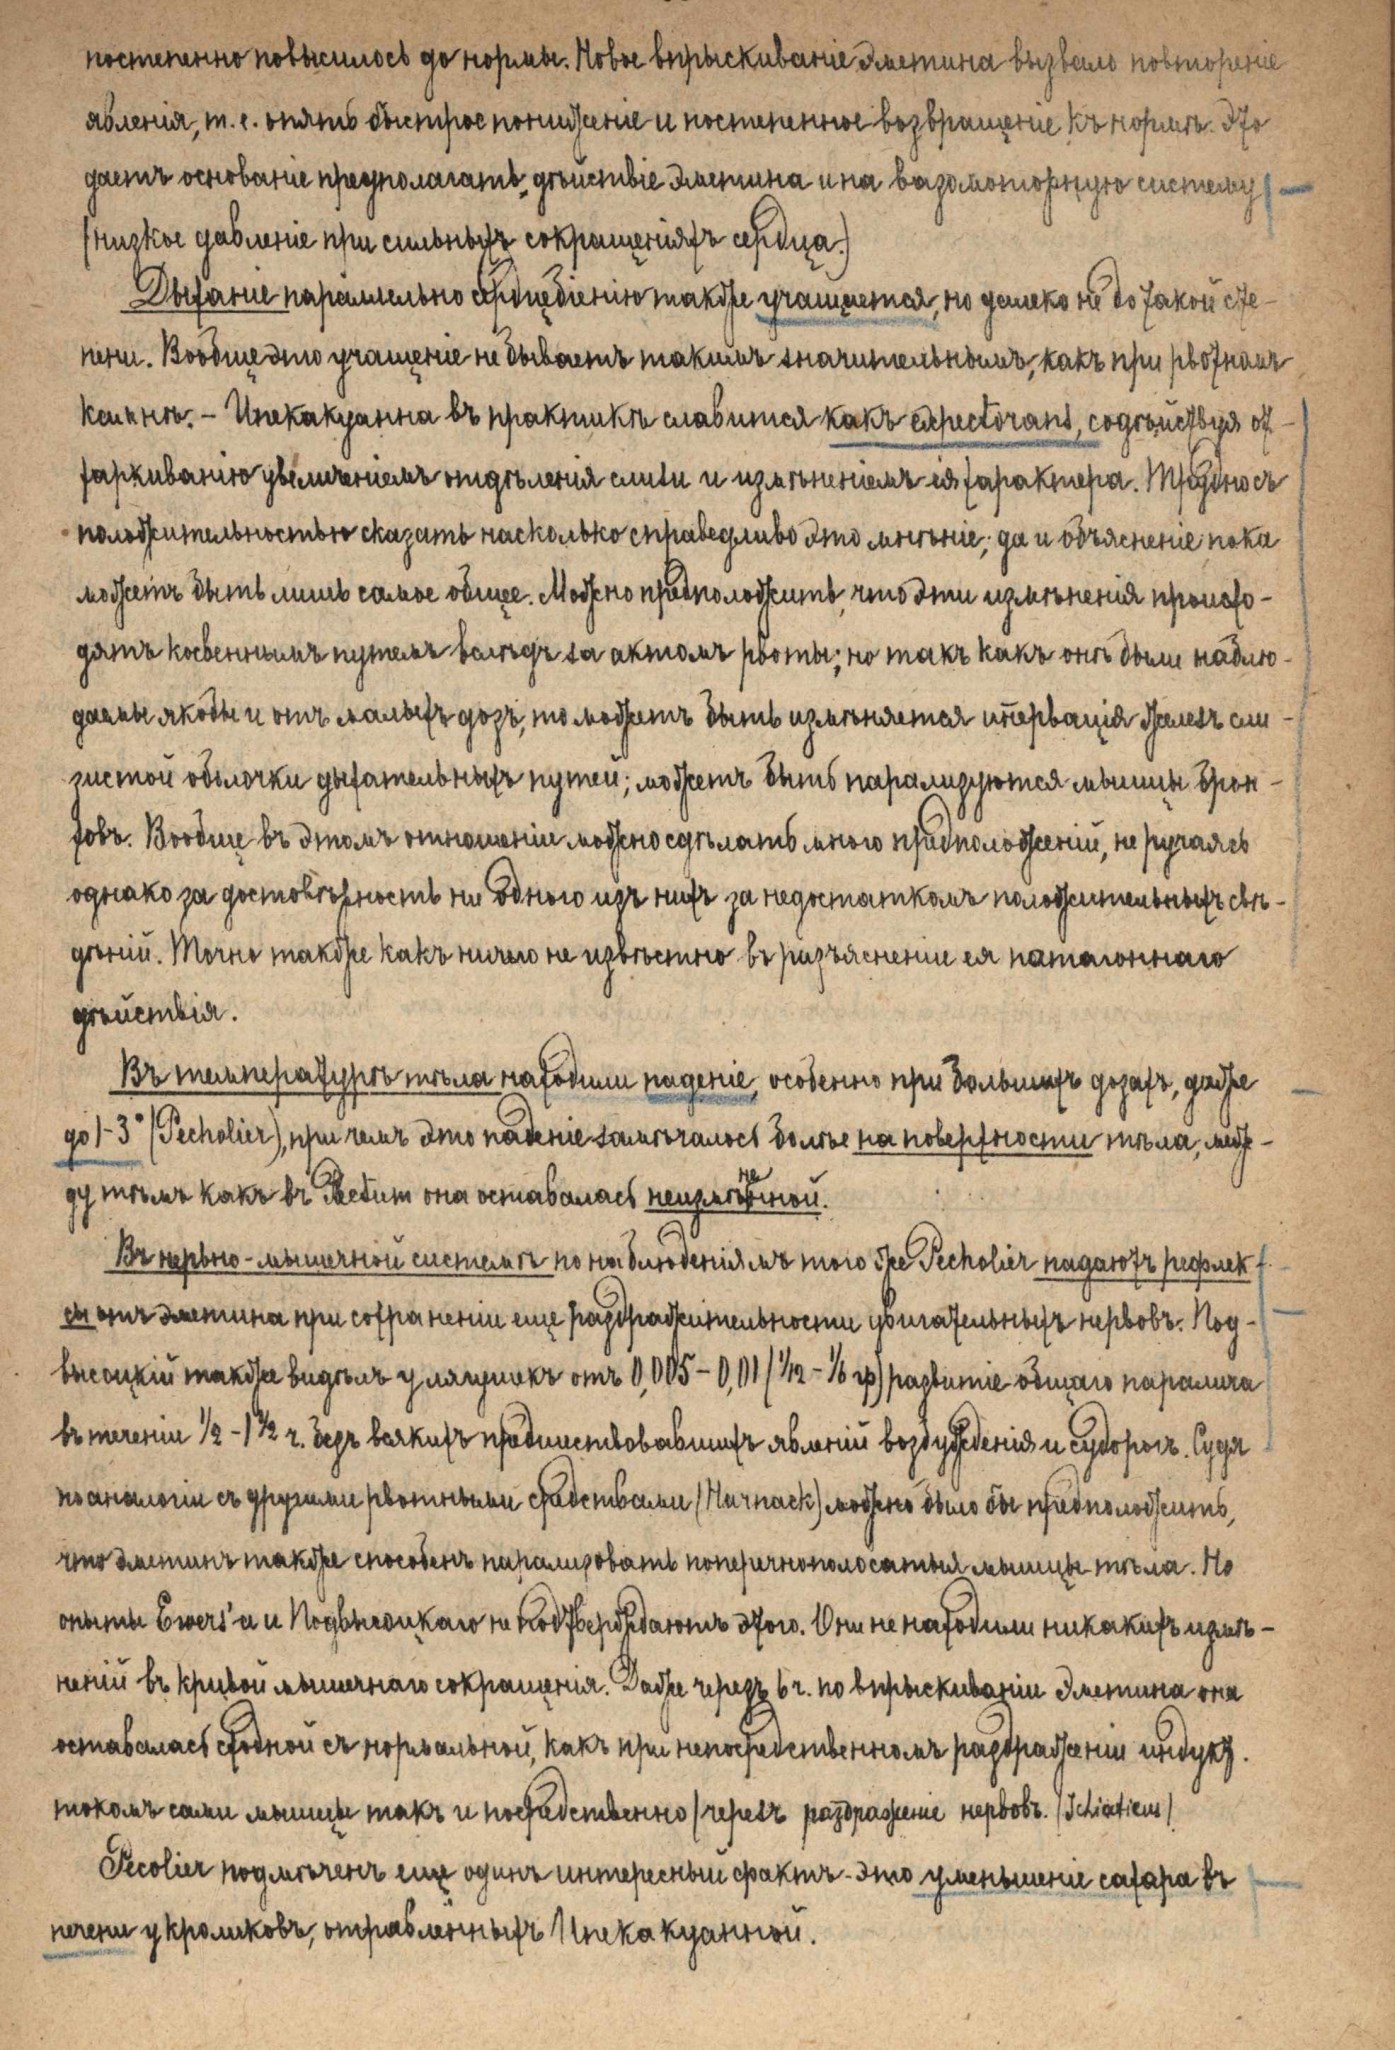 постепенно повысилось до нормы. Новое впрыскиваніе эметина вызвало повтореніе
явленія, т. е. опять быстрое пониженіе и постепенное возвращеніе къ нормѣ. Это
даетъ основаніе предполагать дѣйствіе эметина и на вазомоторную систему
(низкое давленіе при сильныхъ сокращеніяхъ сердца.)
Дыханіе параллельно сердцебіенію также учащается, но далеко не до такой сте-
пени. Вообще это учащеніе не бываетъ такимъ значительнымъ, какъ при рвотномъ
камнѣ. – Ипекакуанна въ практикѣ славится какъ expectorans, содѣйствуя от-
харкиванію увеличеніемъ отдѣленія слизи и измѣненіемъ ея характера. Трудно съ
положительностью сказать насколько справедливо это мнѣніе; да и объясненіе пока
можетъ быть лишь самое общее. Можно предположить, что эти измѣненія происхо-
дятъ косвеннымъ путемъ вслѣдъ за актомъ рвоты; но такъ какъ онѣ были наблю-
даемы якобы и отъ малыхъ дозъ, то можетъ быть измѣняется иннервація железъ сли-
зистой оболочки дыхательныхъ путей; можетъ быть парализуются мышцы брон-
ховъ. Вообще въ этомъ отношеніи можно сдѣлать много предположеній, не ручаясь
однако за достовѣрность ни одного изъ нихъ за недостаткомъ положительныхъ свѣ-
дѣній. Точно также какъ ничего не извѣстно въ разъясненіе ея потогоннаго
дѣйствія.
Въ температурѣ тѣла находили паденіе, особенно при большихъ дозахъ, даже
до 1-3° (Pecholier), при чемъ это паденіе замѣчалось болѣе на поверхности тѣла, меж-
ду тѣмъ какъ въ Rectum она оставалась неизмѣнной.
Въ нервно-мышечной системѣ по наблюденіямъ того же Pecholier падаютъ рефлек-
сы отъ эметина при сохраненіи еще раздражительности двигательныхъ нервовъ. Под-
высоцкій также видѣлъ у лягушекъ отъ 0,005 – 0,01 (1/12 – 1/6 гр) развитіе общаго паралича
въ теченіи 1/2 – 1 1/2 ч. безъ всякихъ предшествовавшихъ явленій возбужденія и судорогъ. Судя
по аналогіи съ другими рвотными средствами (Harnack) можно было бы предположить,
что эметинъ также способенъ парализовать поперечнополосатыя мышцы тѣла. Но
опыты Ewers'а и Подвысоцкаго не подтверждаютъ этого. Они не находили никакихъ измѣ-
неній въ кривой мышечнаго сокращенія. Даже черезъ 6 ч. по впрыскиваніи эметина она
оставалась сходной съ нормальной, какъ при непосредственномъ раздраженіи индукт.
токомъ сами мышцы такъ и посредственно (черезъ раздраженіе нервовъ. (Ischiadicus)
Pecolier подмѣченъ еще одинъ интересный фактъ – это уменьшеніе сахара въ
печени у кроликовъ, отравленныхъ Ипекакуанной.